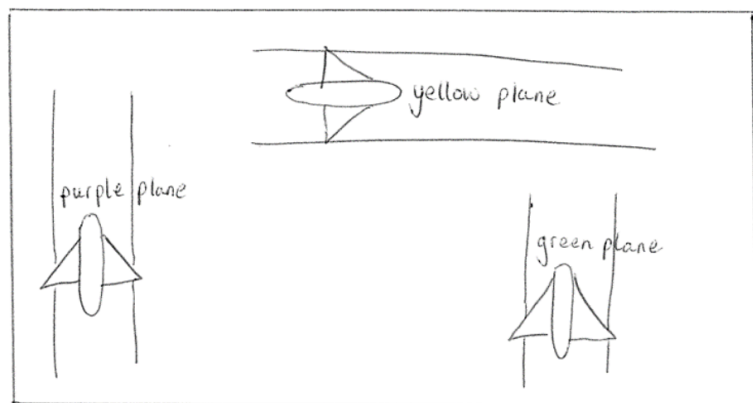 yellow plane
purple plane
green plane